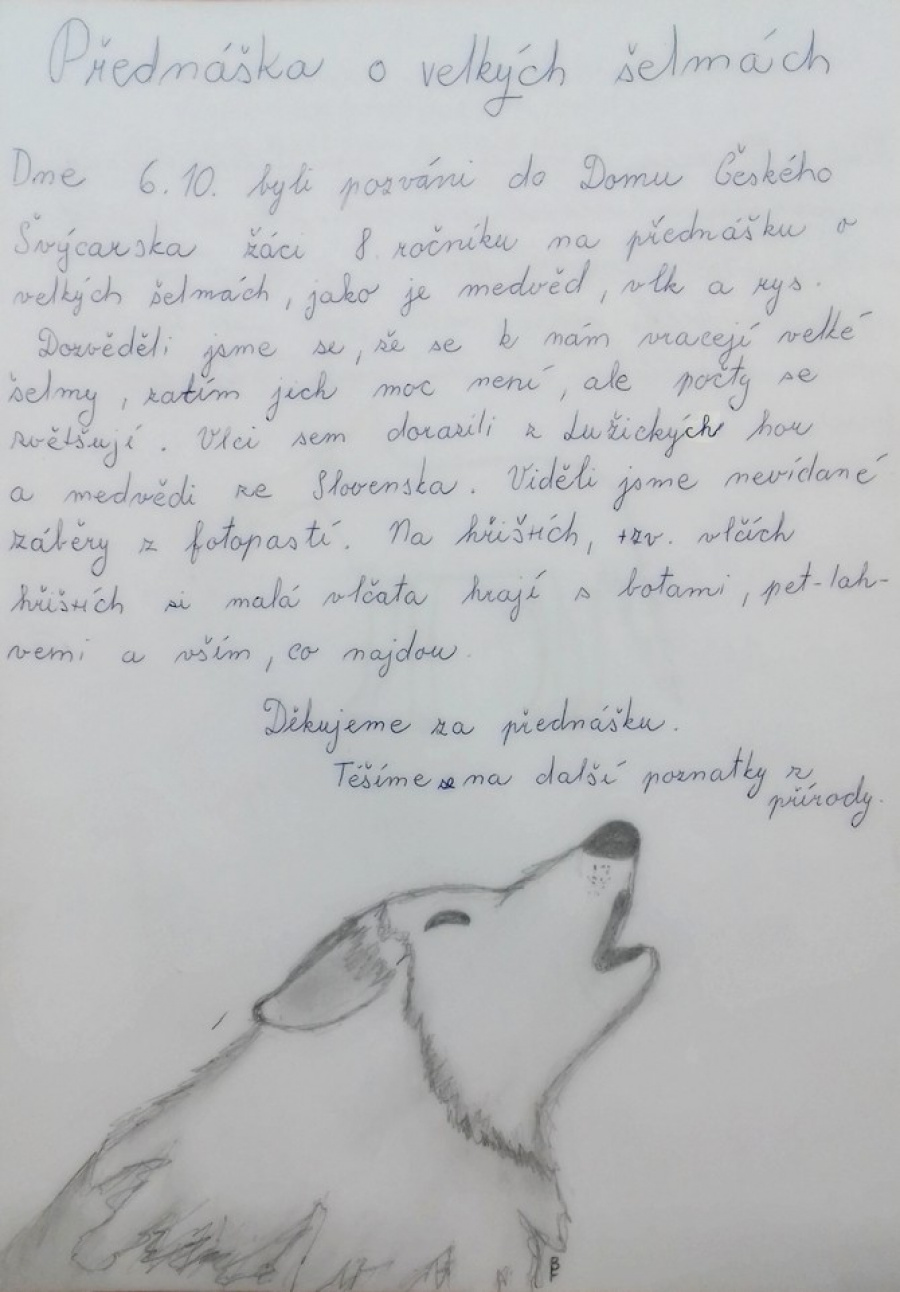 Přednáška o velkých šelmách
Dne 6.10. byli pozváni do Domu Českého
Švýcarska žáci 8. ročníku na přednášku o
velkých šelmách, jako je medvěd, vlk a rys.
Dozvěděli jsme se, že se k nám vracejí velké
šelmy, zatím jich moc není, ale počty se
zvětšují. Vlci sem dorazili z Lužických hor
a medvědi ze Slovenska. Viděli jsme nevídané
záběry z fotopastí. Na hřištích, tzv. vlčích
hřištích si malá vlčata hrají s botami, pet-lah-
vemi a vším, co najdou.
Děkujeme za přednášku.
Těšíme se na další poznatky z
přírody.